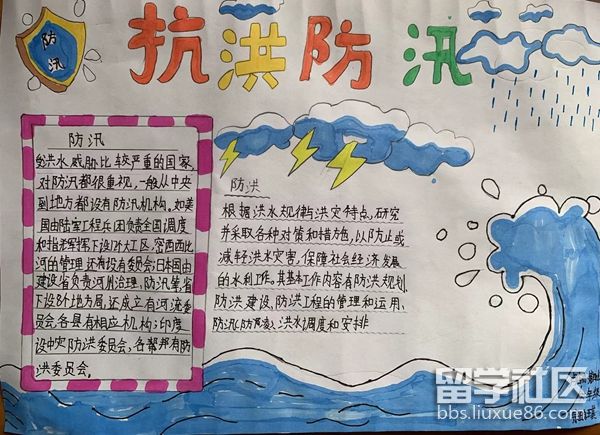 抗洪防汛
防汛
防汛
受洪水威胁比较严重的国家,
对防汛都很重视,一般从中央
到地方都设有防汛机构。如美
国由陆军工程兵团负责全国调度
和指挥,下设
工区,密西西比
河的管理还有设有委员会;日本国由
建设省负责河川治理、防汛等,省
下设8个地方局,还成立有河流委
员会,各县有相应机构;印度
设中央防洪委员会,各帮邦有防
洪委员会。
防洪
根据洪水规律与洪灾特点,研究
并采取各种对策和措施,以防止或
减轻洪水灾害,保障社会经济发展
的水利工作。其基本工作内容有防洪规划、
防洪建设、防洪工程的管理和运用、
防汛(防凌)、洪水调度和安排
留学社区
bbs.liuxue86.com